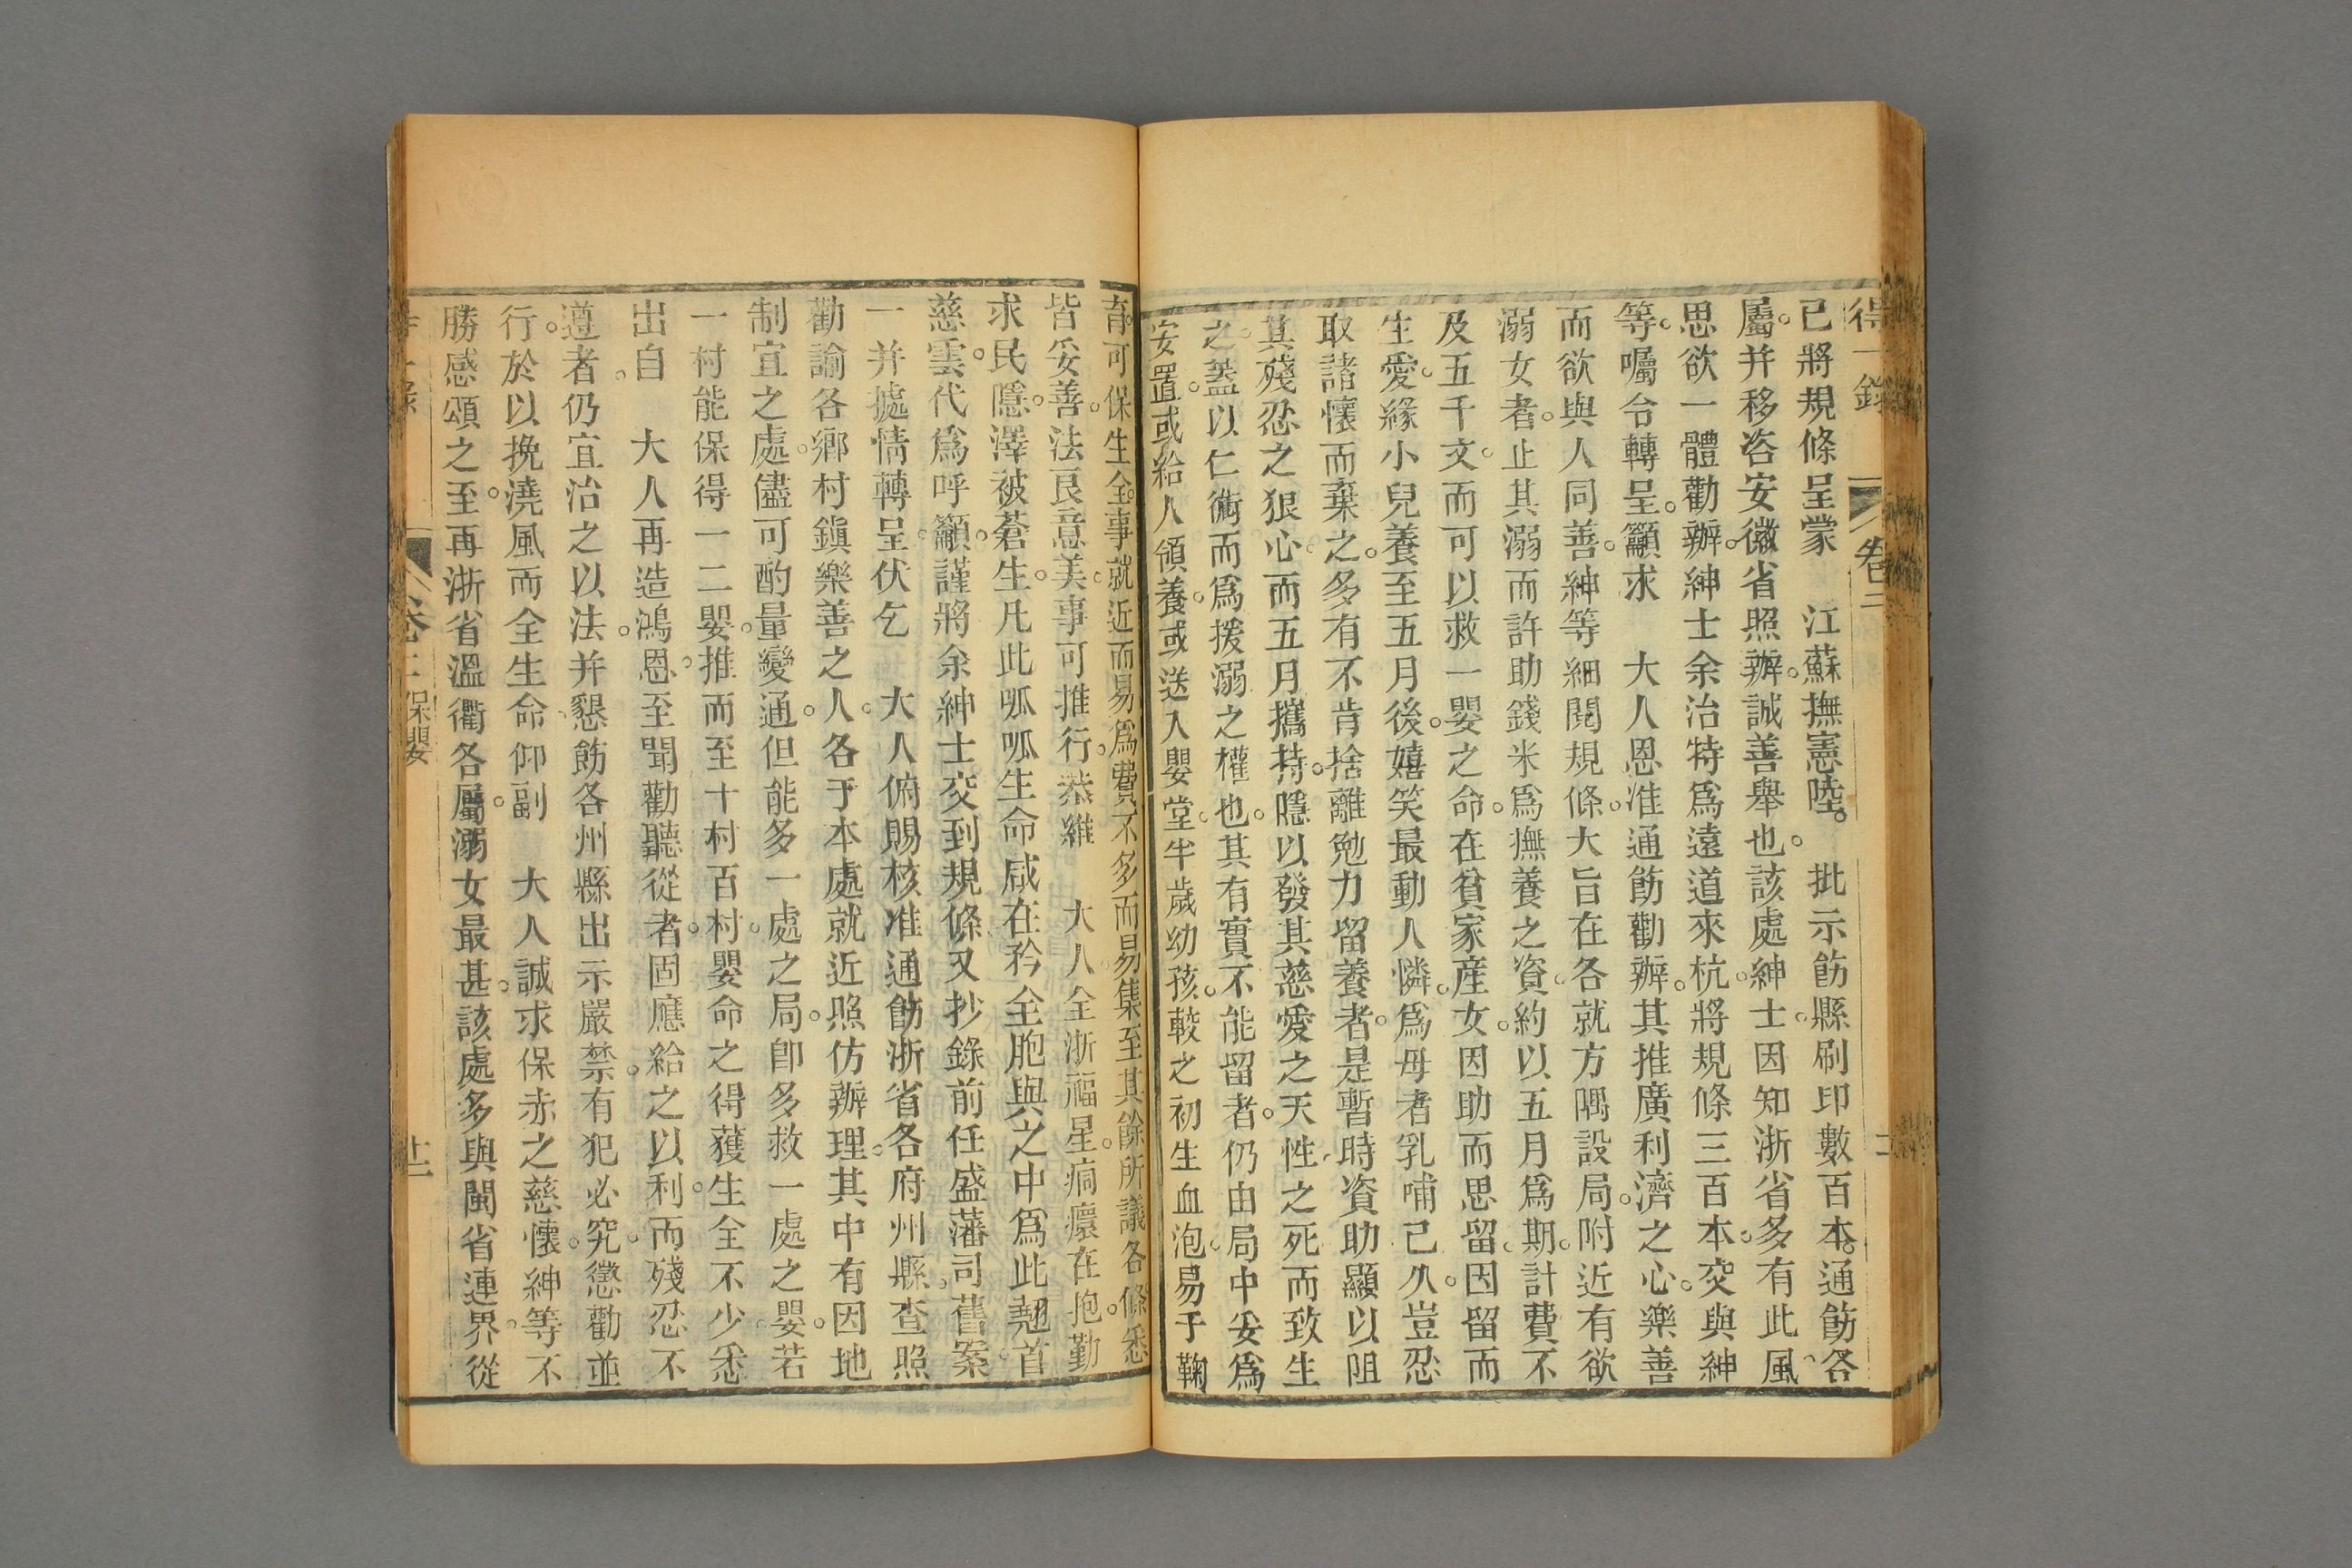 得一錄 卷二
已將規條呈蒙 江蘇撫憲陸。批示飭縣刷印數百本。通飭各
屬。并移咨安徽省照辦。誠善舉也。該處紳士。因知浙省多有此風。
思欲一體勸辦。紳士余治特爲遠道來杭。將規條三百本。交與紳
等。囑令轉呈。籲求 大人恩准。通飭勸辦。其推廣利濟之心。樂善
而欲與人同善。紳等細閱規條。大旨在各就方隅設局。附近有欲
溺女者。止其溺而許助錢米。爲撫養之資。約以五月爲期。計費不
及五千文。而可以救一嬰之命。在貧家產女。因助而思留。因留而
生愛。緣小兒養至五月後。嬉笑最動人憐。爲母者乳哺已久。豈忍
取諸懷而棄之。多有不肯捨離勉力留養者。是暫時資助。顯以阻
其殘忍之狠心。而五月攜持。隱以發其慈愛之天性。之死而致生
之。蓋以仁術而爲援溺之權也。其有實不能留者。仍由局中妥爲
安置。或給人領養。或送入嬰堂。半歲幼孩。較之初生血泡。易于鞠
育。可保生全。事就近而易爲。費不多而易集。至其餘所議各條。悉
皆妥善。法良意美。事可推行。恭維 大人全浙福星。痌瘝在抱。勤
求民隱。澤被蒼生。凡此呱呱生命。咸在矜全胞與之中。爲此翹首
慈雲。代爲呼籲。謹將余紳士交到規條。又抄錄前任盛藩司舊案。
一并據情轉呈。伏乞 大人俯賜核准。通飭浙省各府州縣。查照
勸諭各鄉村鎮樂善之人。各于本處就近照仿辦理。其中有因地
制宜之處。儘可酌量變通。但能多一處之局。卽多救一處之嬰。若
一村能保得一二嬰。推而至十村百村。嬰命之得獲生全不少。悉
出自 大人再造鴻恩。至聞勸聽從者。固應給之以利。而殘忍不
遵者。仍宜治之以法。并懇飭各州縣出示嚴禁。有犯必究。懲勸並
行。於以挽澆風而全生命。仰副 大人誠求保赤之慈懷。紳等不
勝感頌之至。再浙省溫衢各屬。溺女最甚。該處多與閩省連界。從
卷二 保嬰